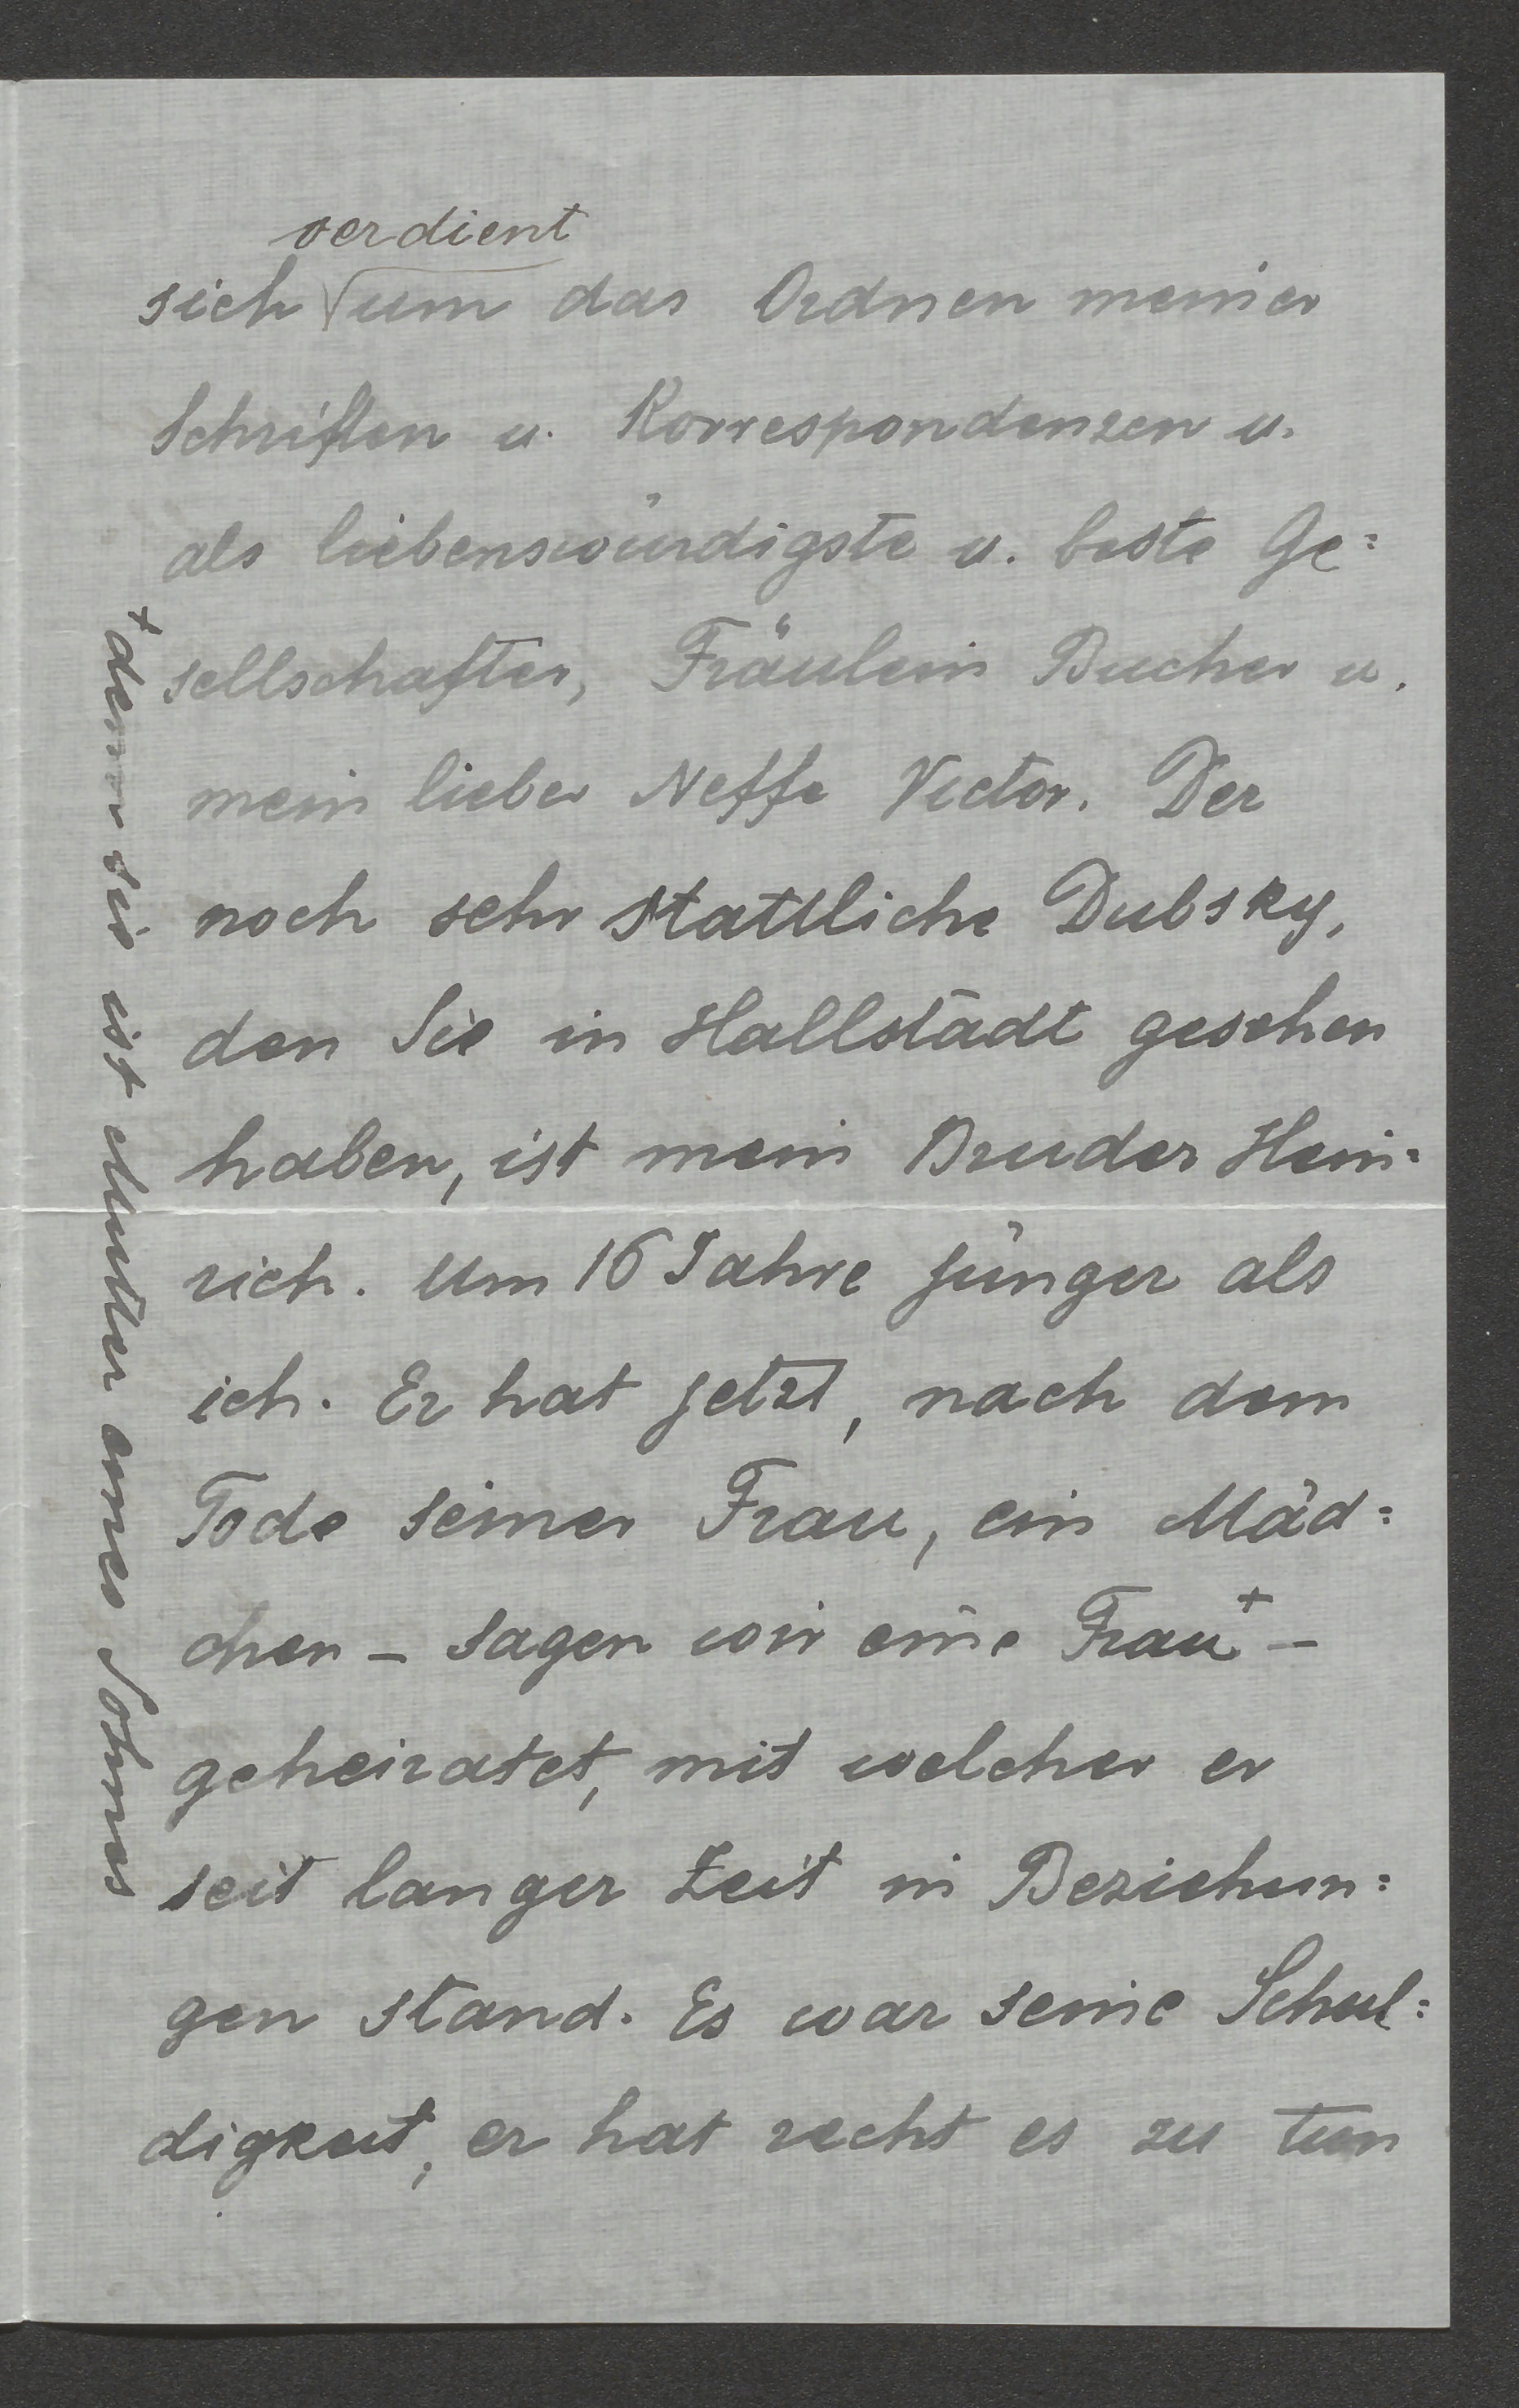 verdient
sich um das Ordnen meiner
Schriften u. Korrespondenzen u.
als liebenswürdigste u. beste Ge=
sellschafter, Fräulein Bucher u.
mein lieber Neffe Victor. Der
noch sehr stattliche Dubsky,
den Sie in Hallstadt gesehen
haben, ist mein Bruder Hein=
rich. Um 16 Jahre jünger als
ich. Er hat jetzt, nach dem
Tode seiner Frau, ein Mäd=
chen – sagen wir eine Frau+ –
geheiratet, mit welcher er
seit langer Zeit in Beziehun=
gen stand. Es war seine Schul=
digkeit, er hat recht es zu tun
+ denn sie ist Mutter eines Sohnes